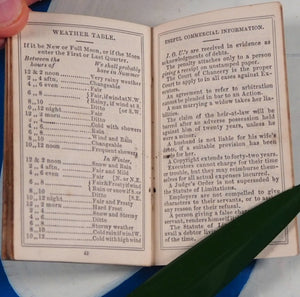 WEATHER TABLE.
If it be New or Full Moon, or if the Moon
enter the First or Last Quarter.
Between the We shall probably
hours of have in Summer
12 & 2 noon Very rainy weather
2 .. 4 aftn. Changeable
4 .. 6 Fair
6 .. 8 Fair, if Wind
8 .. 10 Rainy, if wind at S
10 .. 12 night Fair
12 .. 2 Ditto
2 .. 4 Cold with showers
4 .. 6 Rain
6 .. 8 Wind and Rain
8 .. 10 Changeable
10 .. 12 Frequent showers
In Winter.
12 & 2 noon Snow and Rain
2 .. 4 aftn. Fair and Mild
4 .. 6 Fair
6 .. 8
8 .. 10 Rain or snow if
10 .. 12 night Fair and Frosty
12 .. 2 Hard Frost
2 .. 4 Snow and Stormy
4 .. 6 Ditto
6 .. 8 Stormy weather
8 .. 10 Cold rain if wind W.
10 .. 12 Cold with high wind
USEFUL COMMERCIAL INFORMATION.
I. O. U.'s are received in evidence as
acknowledgments of debts.
The penalty attaches only to a person
giving a receipt on unstamped paper.
The Court of Chancery is the proper
Court to apply to in all cases against Executors.
An agreement to refer to arbitration
cannot be pleaded in bar to an Action.
A man marrying a widow takes her liabilities.
The claim of the heir-at-law will be
barred after an adverse possession held
against him of twenty years, unless
he were a minor.
A husband is not liable for his wife's
debts, if a suitable provision has been
A Copyright extends to forty-two years.
Executors cannot charge for their time
or trouble, but they may reimburse themselves
for all actual expenses incurred.
A Judge's Order is not suspended
Employers are not compelled to give
characters to their servants, or to assign
any reason for their refusal.
A person giving a false character
servant, renders himself
The Statute of Limitations
a debtor liable